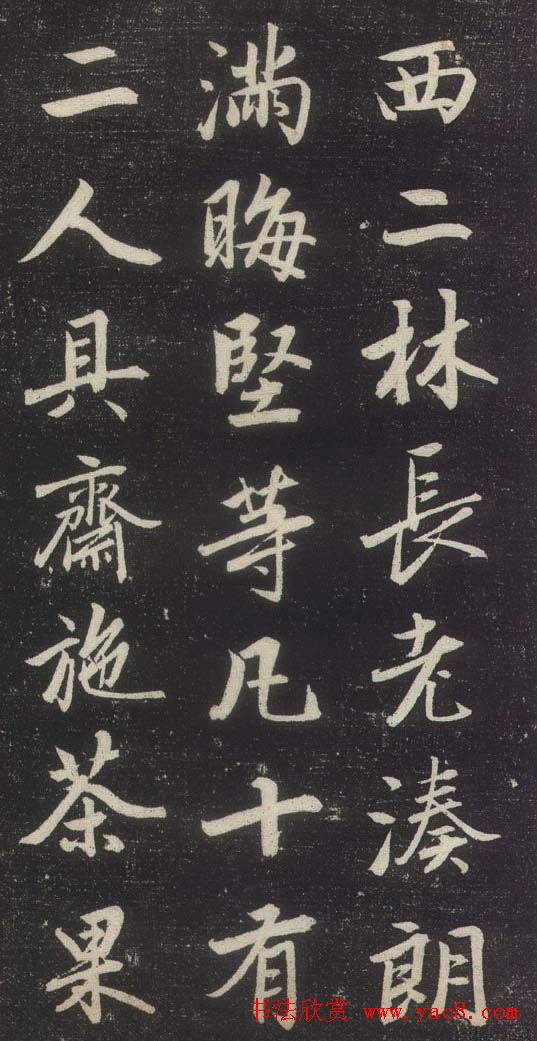 西二林長老湊朗
滿晦堅等凡十有
二人具齋施茶果
书法欣赏 www.yac8.com